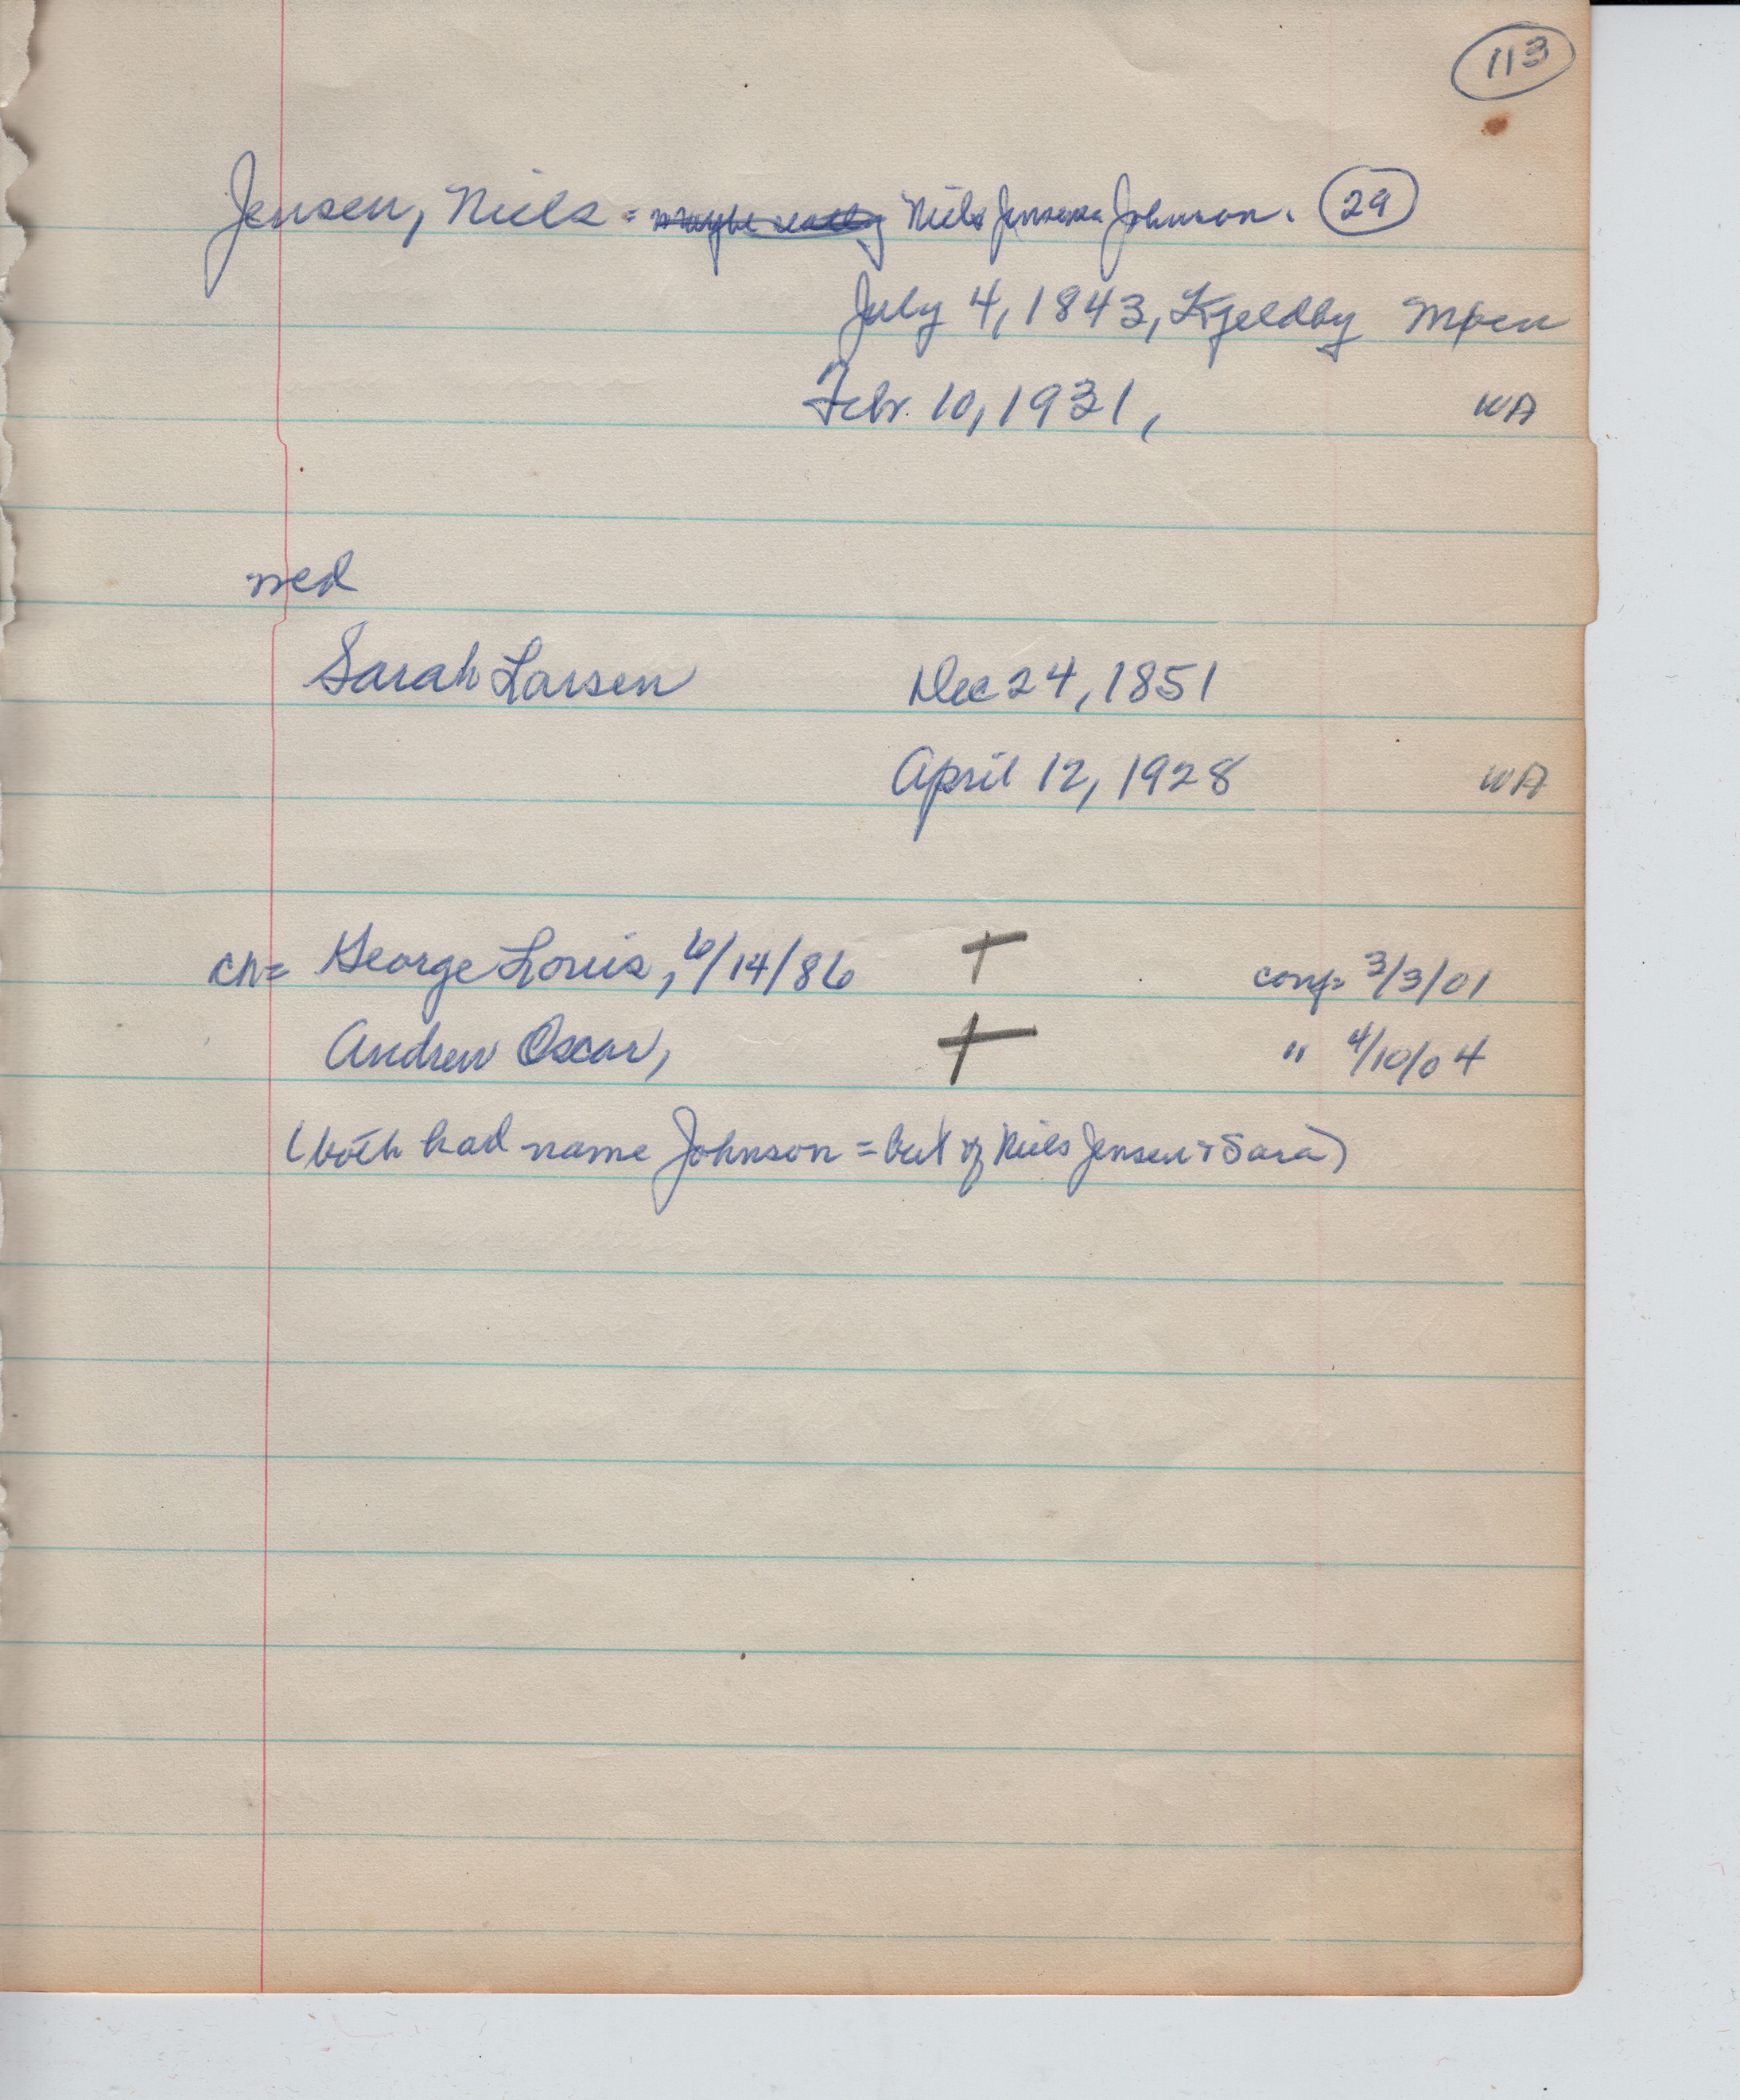 113
Jensen, Niels = maybe really Niels Jensen Johnson. 29
July 4, 1843, Kjeldby Møen
Febr. 10, 1931, WA
med
Sarah Larsen Dec 24, 1851
April 12, 1928 WA
ch= George Louis, 6/14/86 + conf= 3/3/01
Andrew Oscar, + " 4/10/04
(both had name Johnson = but of Niels Jensen & Sara)